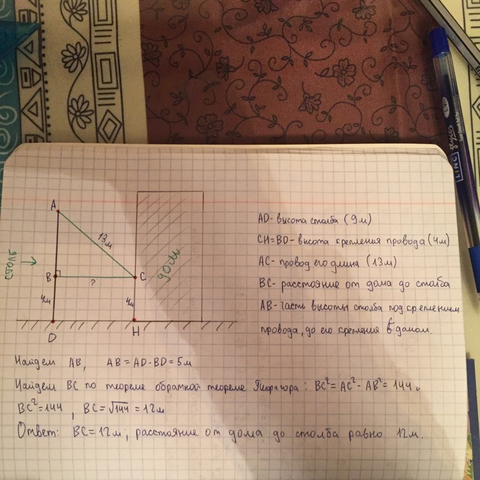 A
13м
столб
B
C
?
4м
4м
дом
D
H
AD- высота столба (9м)
CH=BD- высота крепления провода (4м)
AC- провод его длина (13м)
BC- расстояние от дома до столба
AB- часть высоты столба под креплением
провода, до его крепления с домом.
Найдем AB, AB=AD-BD=5м
Найдем BC по теореме обратной теореме Пифагора: BC²=AC²-AB²=144.
BC²=144, BC=√144=12м
Ответ: BC=12м, расстояние от дома до столба равно 12м.
LINC